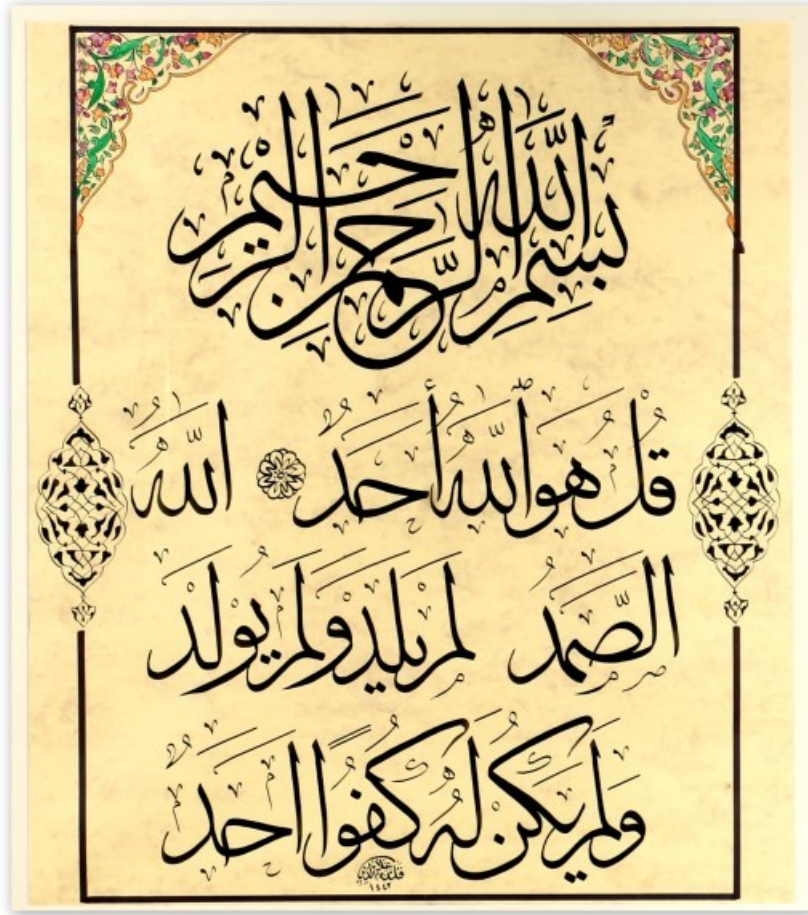 بِسْمِ اللَّهِ الرَّحْمَٰنِ الرَّحِيمِ
قُلْ هُوَ اللَّهُ أَحَدٌ اللَّهُ
الصَّمَدُ لَمْ يَلِدْ وَلَمْ يُولَدْ
وَلَمْ يَكُنْ لَهُ كُفُوًا أَحَدٌ
١٤٤٢